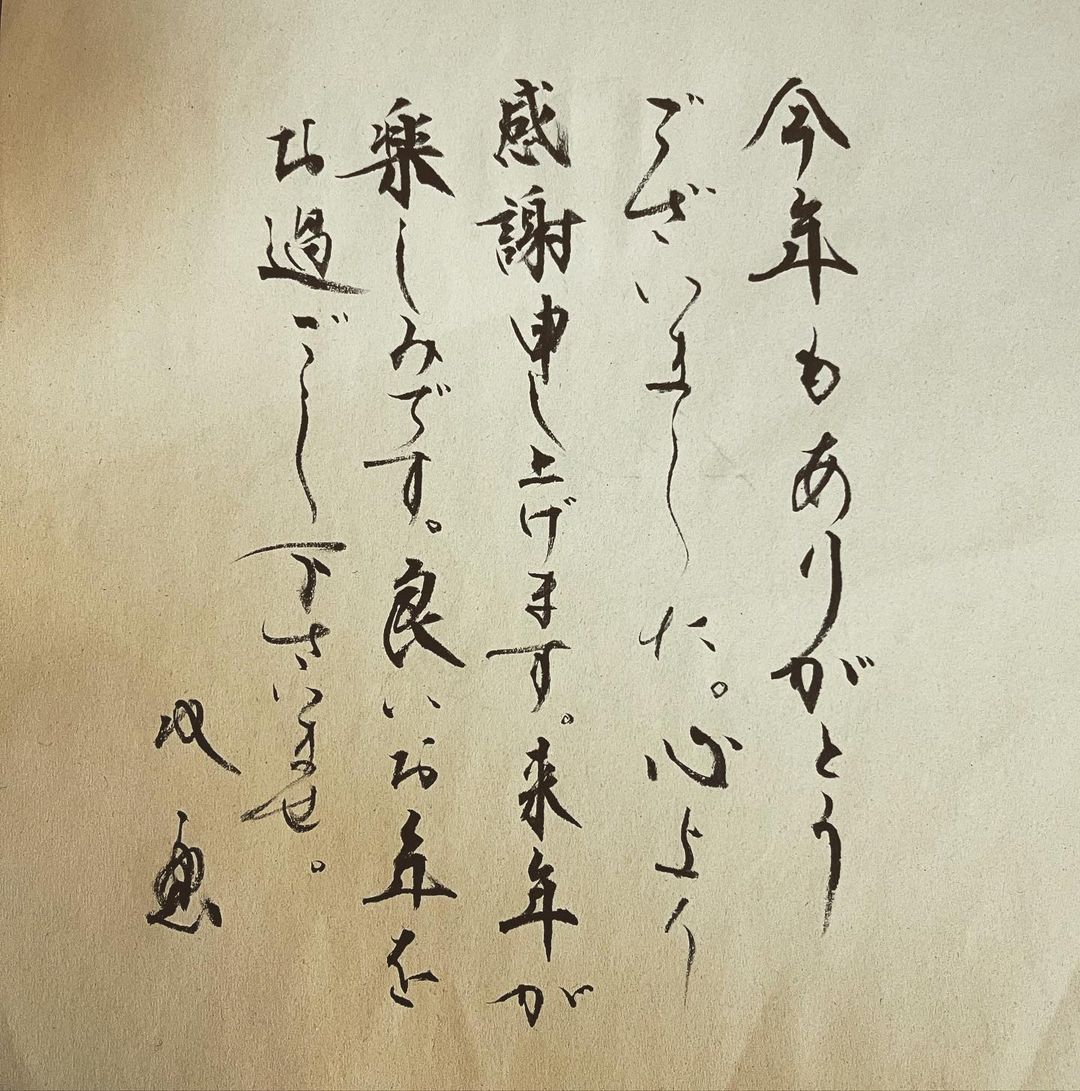 今年もありがとう
ございました。心より
感謝申し上げます。来年が
楽しみです。良いお年を
お過ごし下さいませ。